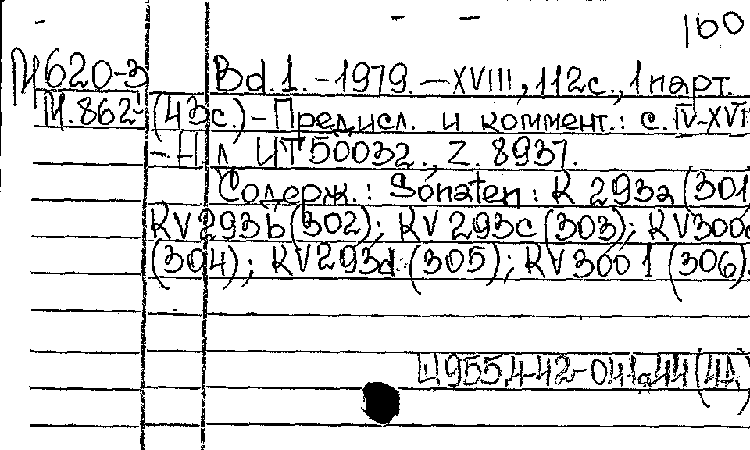 100
М620-3 Bd. 1. - 1979. - XVIII, 112 с., 1 парт.
М.862 (43с.) - Предисл. и коммент.: с. IV-XVII
- Н Л. ИТ50032., Z. 8937.
Содерж.: Sonaten: K 293a (301)
KV 293b (302); KV 293c (303); KV 300c
(304); KV 293d (305); KV 300 l (306).
Ц955,4-42-041а44(4А)